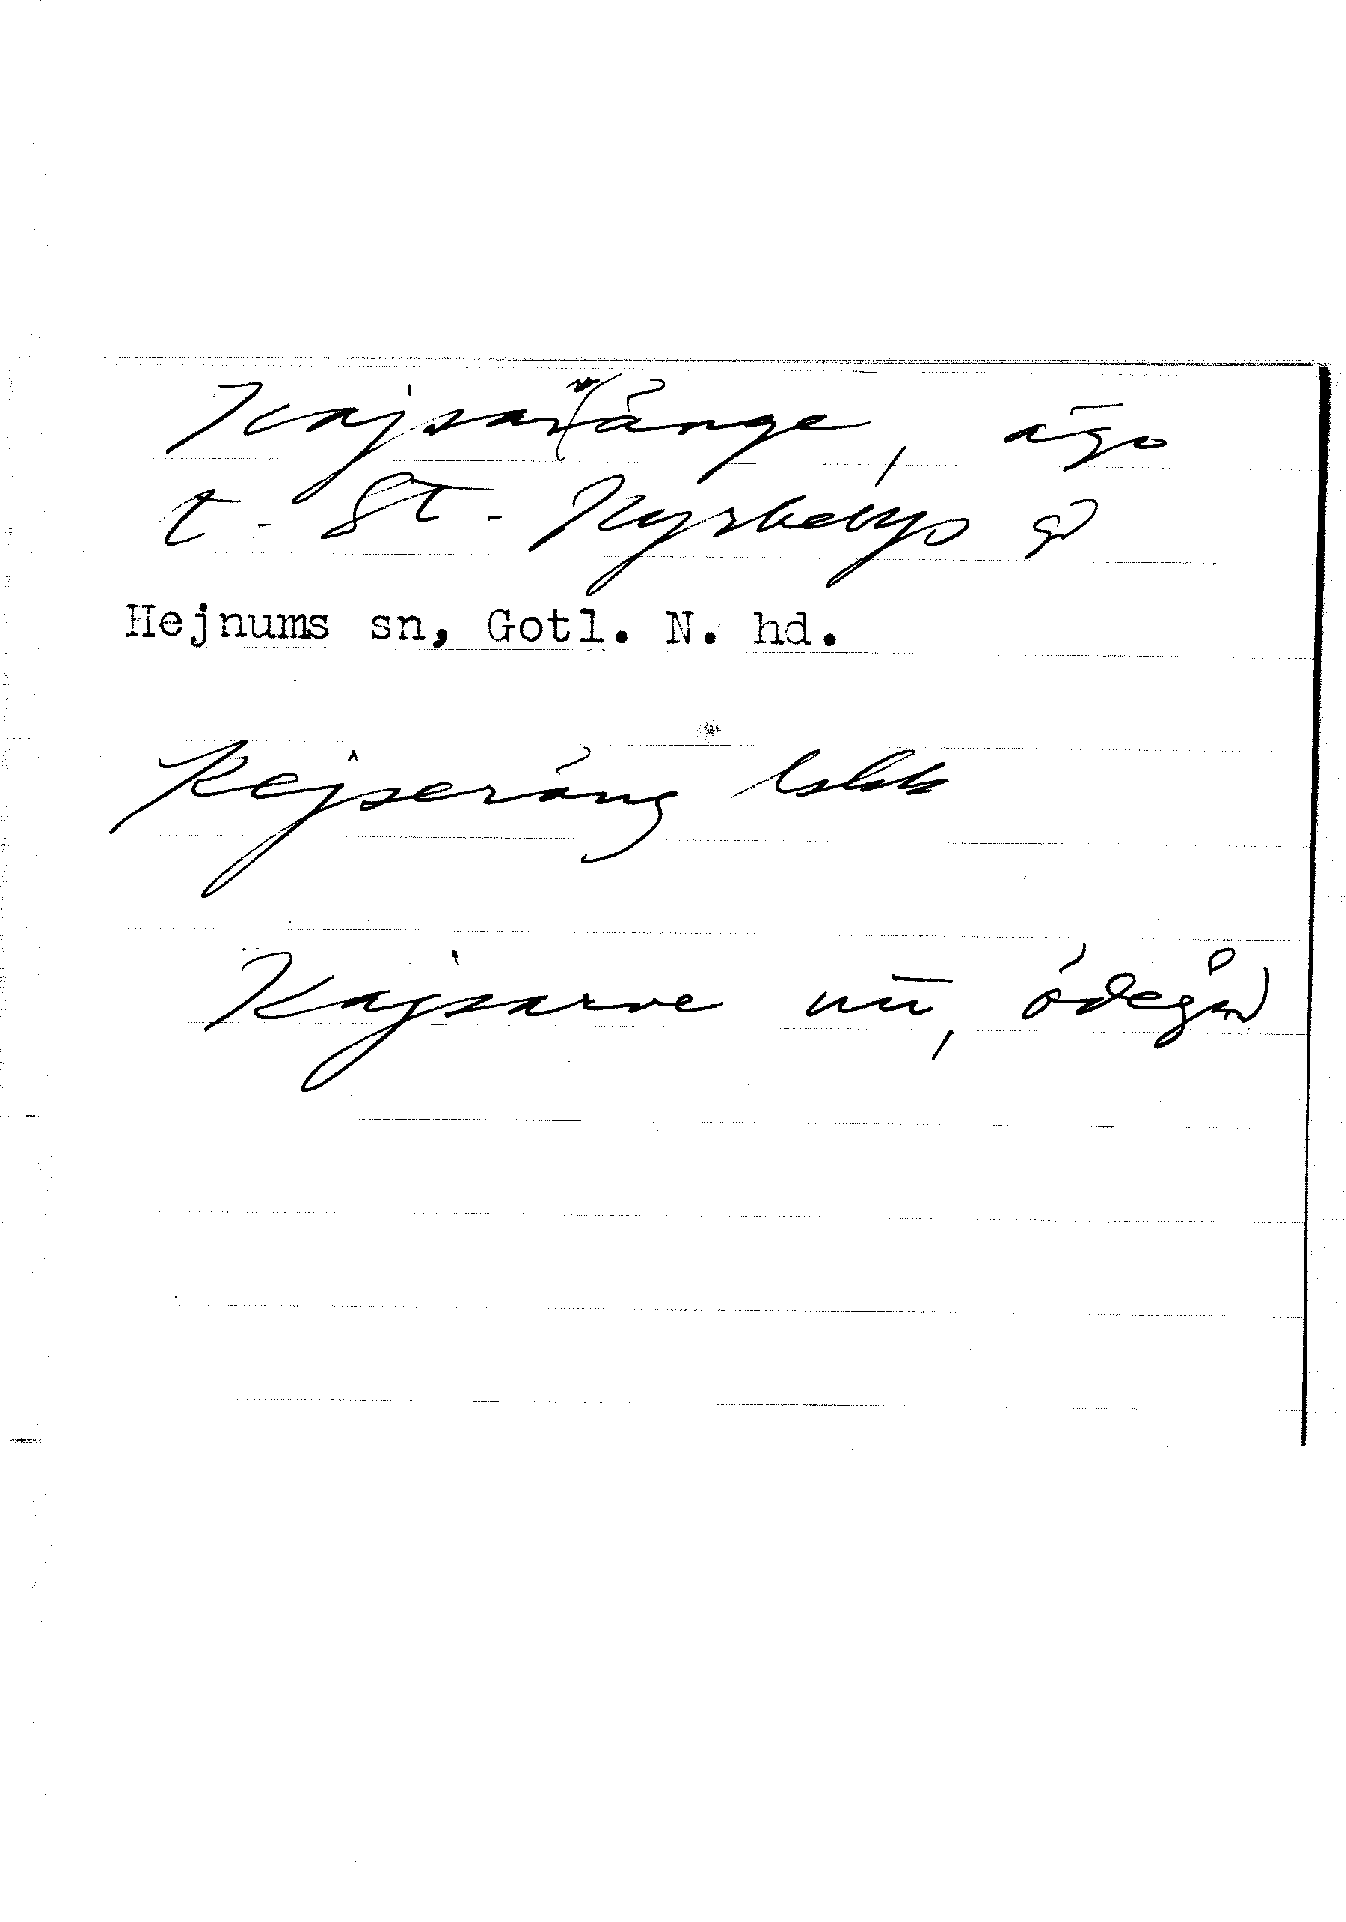 Kajsaränge, ägo
t. St. Kyrkebys gd
Hejnums sn, Gotl. N. hd.
Kejseräng
Kajsarve nu, ödegård